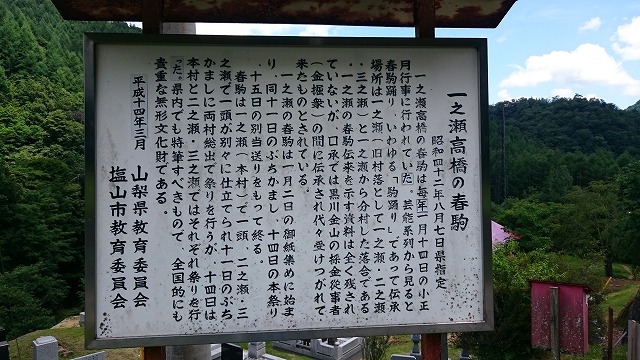 一之瀬高橋の春駒
昭和四十二年八月七日県指定
一之瀬高橋の春駒は毎年一月十四日の小正
月行事に行われていた。芸能系列から見ると
春駒踊り、いわゆる「駒踊り」であって伝承
場所は一之瀬（旧村落として一之瀬・二之瀬
・三之瀬）と一之瀬から分村した落合である
。一之瀬の春駒伝来を示す資料は全く残され
ていないが、口承では黒川金山の採金従事者
（金掘衆）の間に伝承され代々受けつがれて
来たものとされている。
一之瀬の春駒は一月二日の御紙集めに始ま
り、同十一日のぶちかまし、十四日の本祭り
、十五日の別当送りをもって終る。
春駒は一之瀬（本村）で一頭、二之瀬・三
之瀬で一頭が別々に仕立てられ十一日のぶち
かましに両村総出で祭りを行うが、十四日は
本村と二之瀬・三之瀬ではそれぞれ祭りを行
った。県内でも特筆すべきもので、全国的にも
貴重な無形文化財である。
平成十四年三月
山梨県教育委員会
塩山市教育委員会